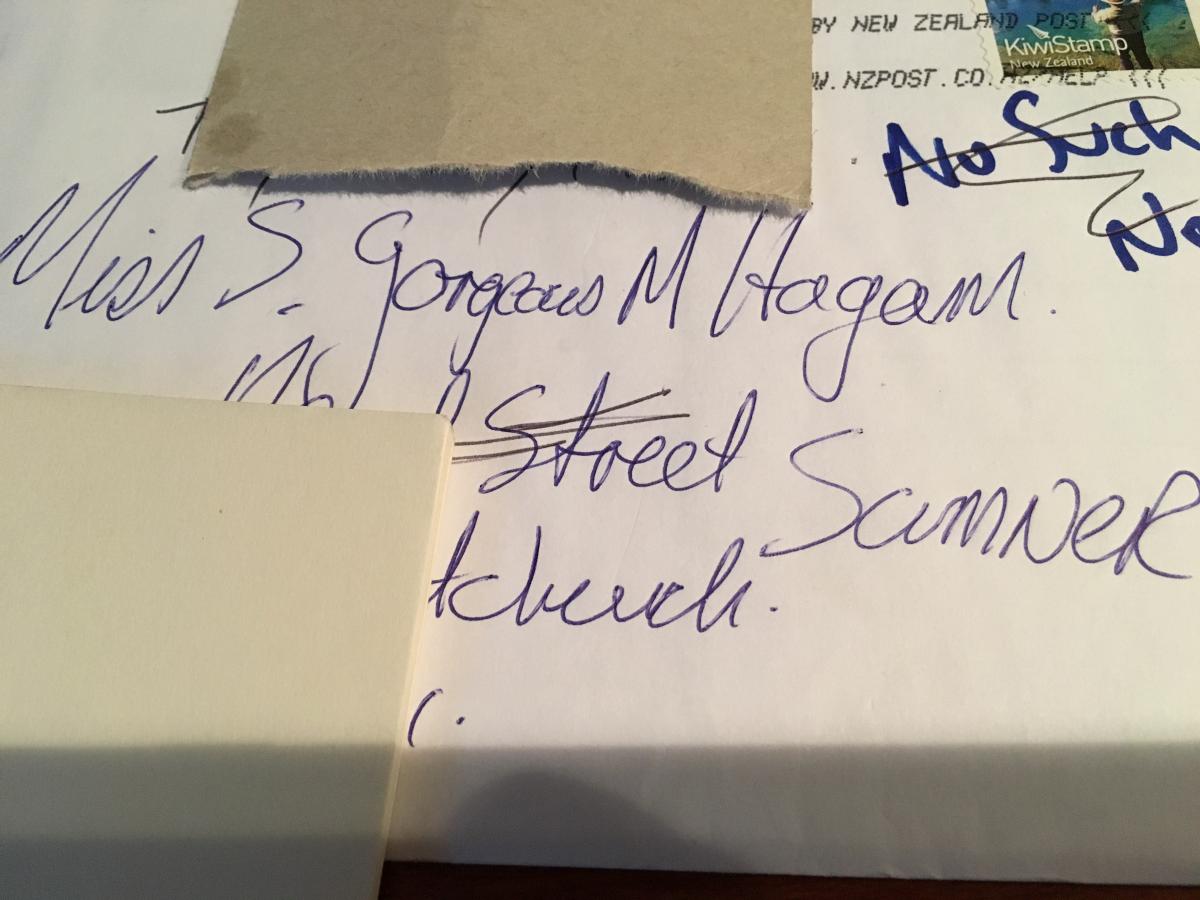 BY NEW ZEALAND POST <<<
W.NZPOST.CO.NZ/HELP <<<
KiwiStamp
New Zealand
No Such
No
Miss S. Gorgeous M Hagam.
Street
SumNeR
tchurch.